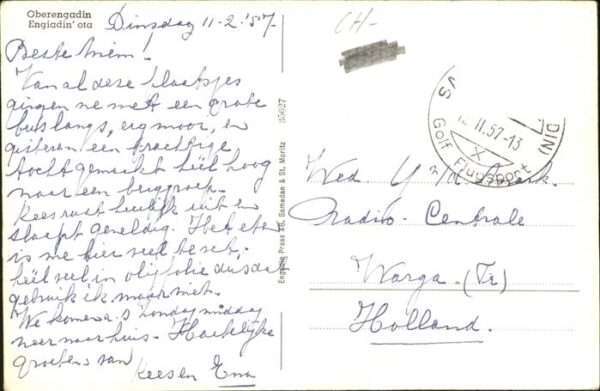 Oberengadin
Engiadin' ota
Dinsdag 11-2.'57.
Beste Miem!
Van al deze plaatsjes
gingen we met een grote
bus langs, erg mooi, en
gisteren een prachtige
tocht gemaakt heel hoog
naar een
Kees rust heerlijk uit en
slaapt geweldig. Het eten
is me hier veel te vet.
heel veel in olijfolie dus dat
gebruik ik maar niet.
We komen a.s. zondagmiddag
weer naar huis. Hartelijke
groeten van
Kees en Ena
Engadin Press AG, Samedan & St. Moritz
CH-
II.57-13
Golf Flugsport
X
Wed.
Radio-Centrale
Warga. (Fr)
Holland.